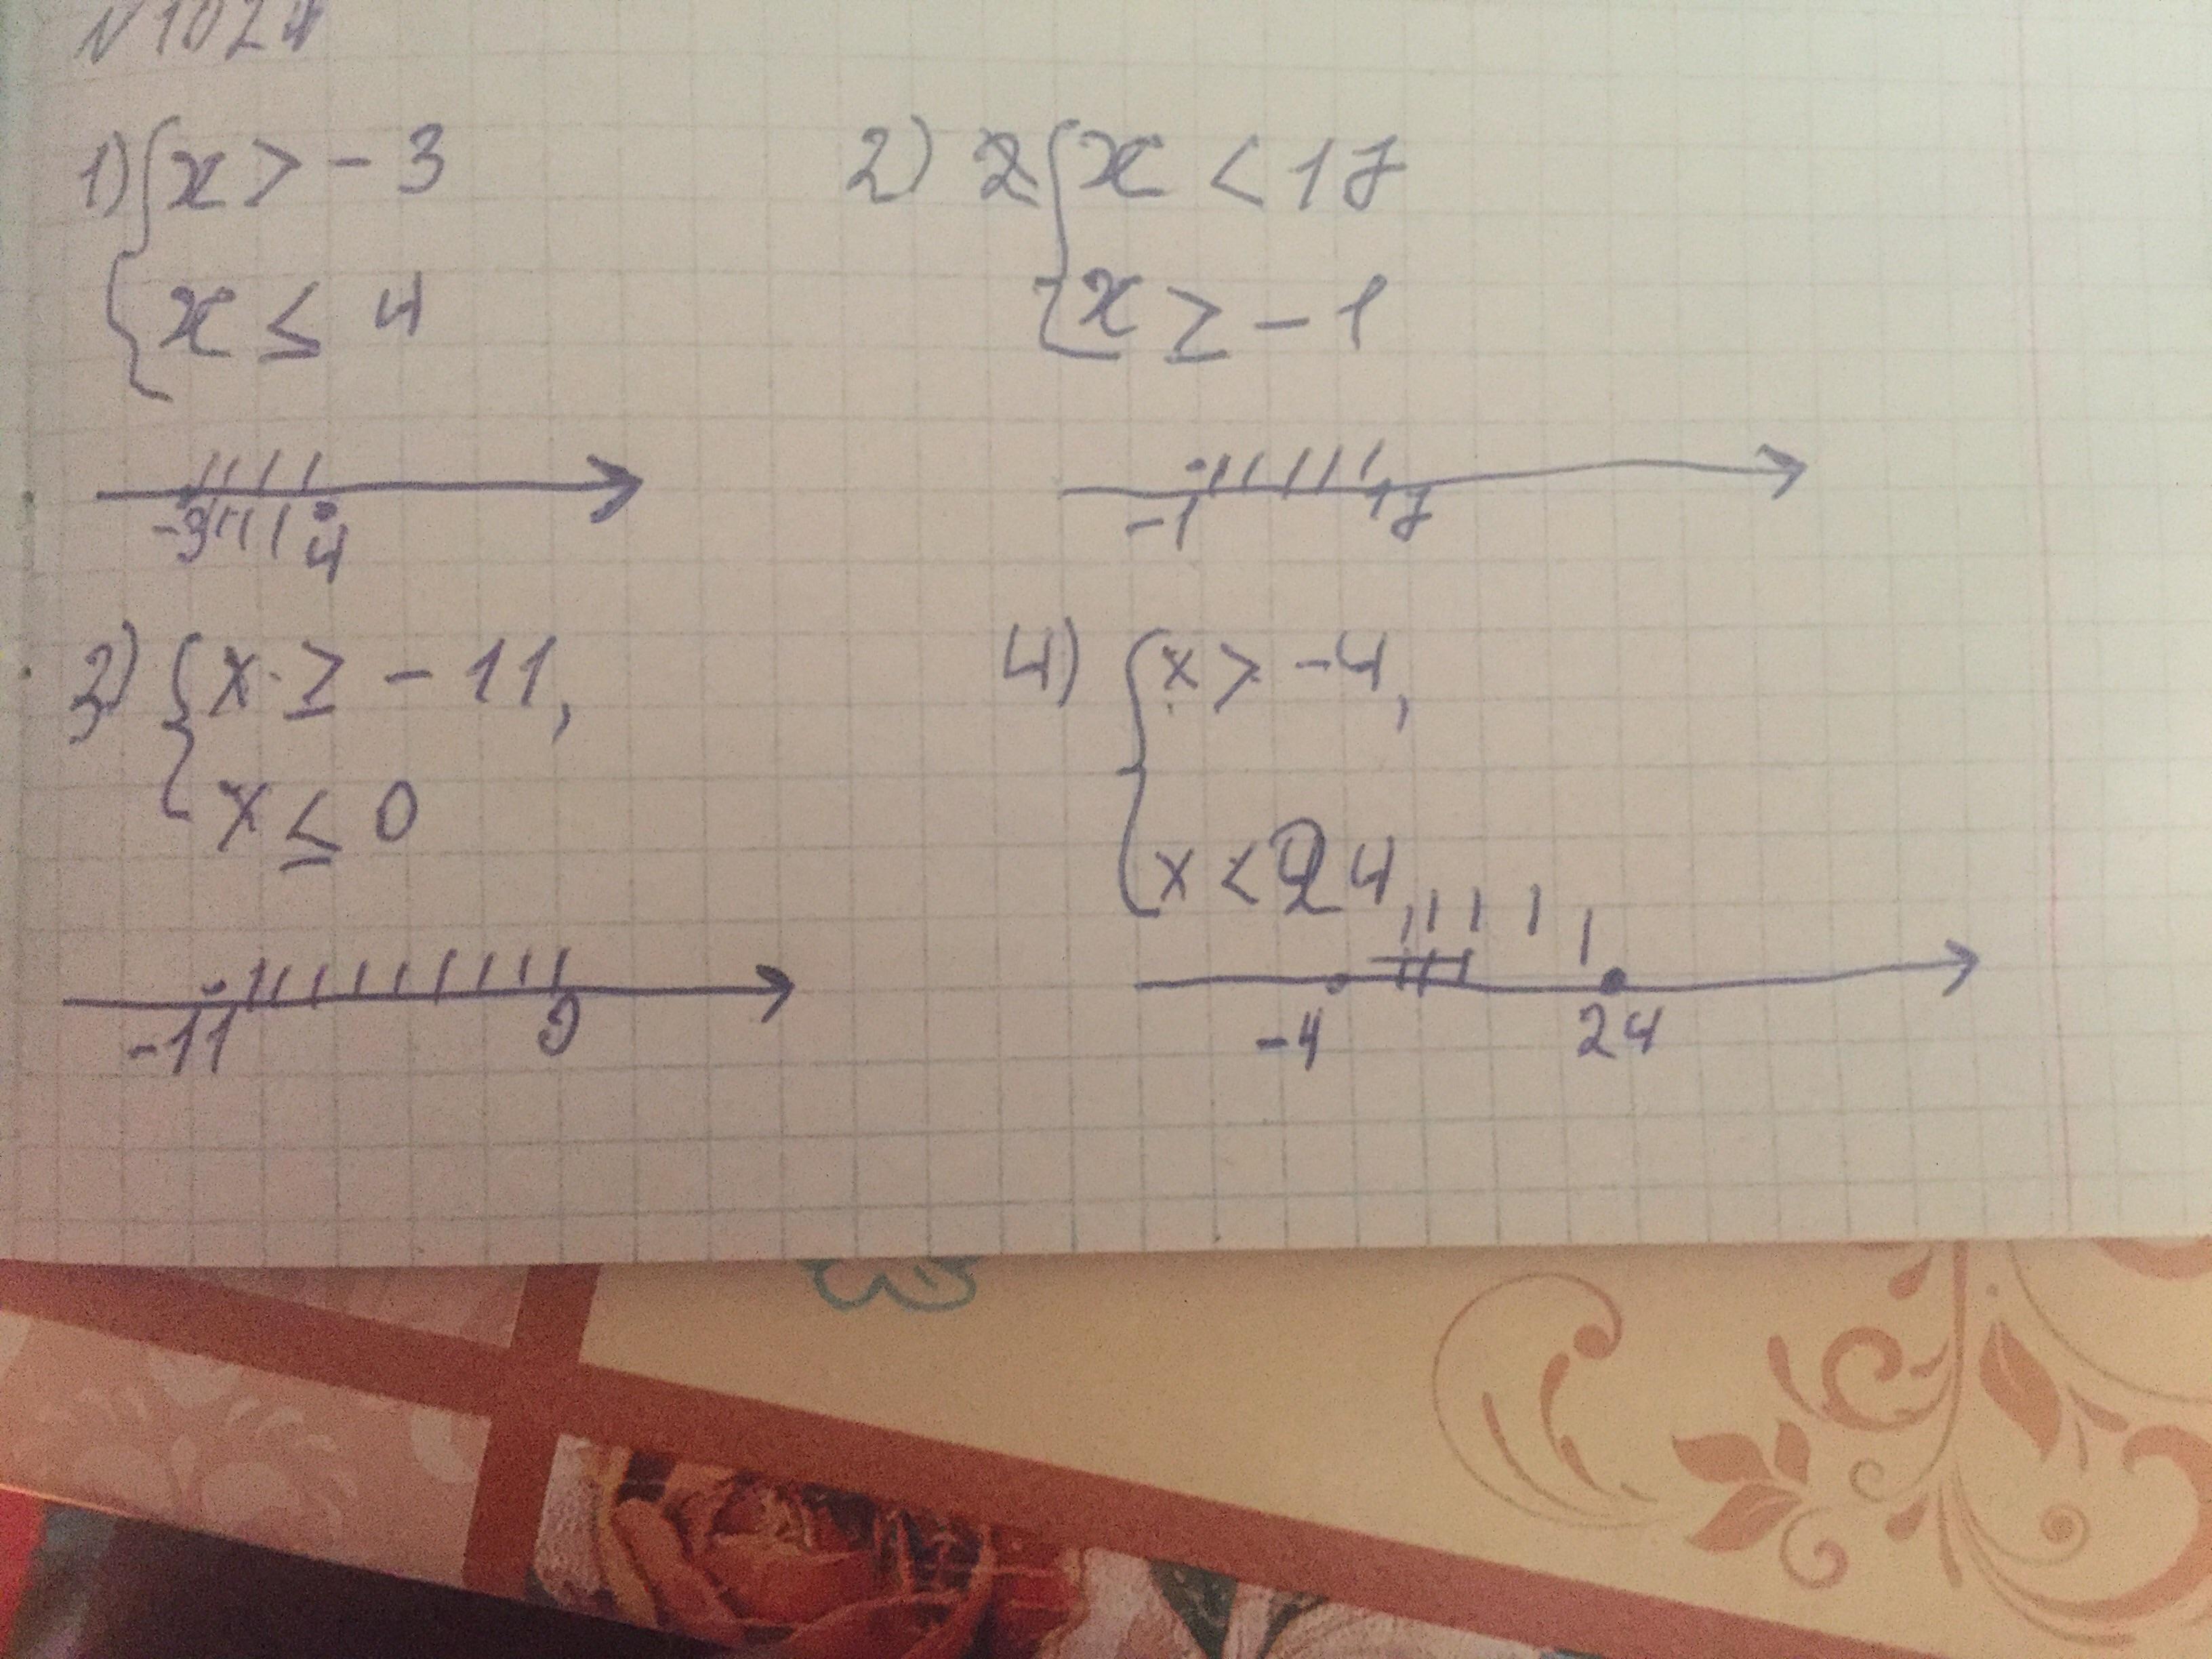 N1024
1) { x > - 3
x ≤ 4
-3 4
2) { x < 17
x ≥ - 1
-1 17
3) { x ≥ - 11,
x ≤ 0
-11 0
4) { x > -4,
x < 24
-4 24